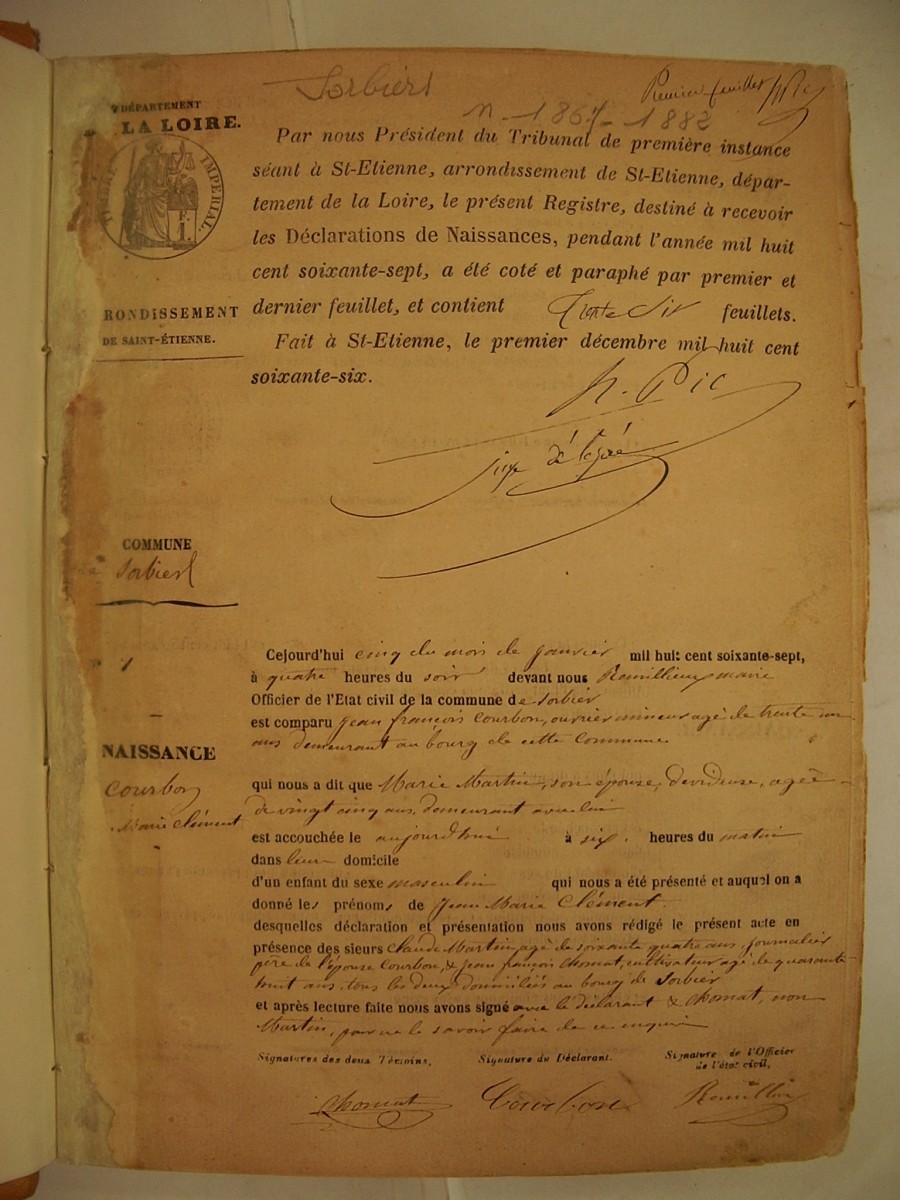 Sorbiers
Premier feuillet HPic
N - 1867 - 1882
DÉPARTEMENT
LA LOIRE.
TIMBRE IMPERIAL.
F.
1.
Par nous Président du Tribunal de première instance
séant à St-Etienne, arrondissement de St-Etienne, dépar-
tement de la Loire, le présent Registre, destiné à recevoir
les Déclarations de Naissances, pendant l'année mil huit
cent soixante-sept, a été coté et paraphé par premier et
dernier feuillet, et contient trente six feuillets.
Fait à St-Etienne, le premier décembre mil huit cent
soixante-six.
RONDISSEMENT
DE SAINT-ÉTIENNE.
h. Pic
juge délégué
COMMUNE
de Sorbiers
Cejourd'hui cinq du mois de janvier mil huit cent soixante-sept,
à quatre heures du soir devant nous maire
Officier de l'Etat civil de la commune de Sorbier
est comparu Jean françois Courbon, ouvrier mineur agé de trente un
ans demeurant au bourg de cette Commune
1
NAISSANCE
Courbon
Marie Clément
qui nous a dit que Marie Martin, son épouse, devideuse, agée
de vingt cinq ans, demeurant avec lui
est accouchée le aujourd'hui à six heures du matin
dans leur domicile
d'un enfant du sexe masculin qui nous a été présenté et auquel on a
donné les prénoms de Jean Marie Clément.
desquelles déclaration et présentation nous avons rédigé le présent acte en
présence des sieurs Claude Martin, agé de soixante quatre ans, journalier
père de l'épouse Courbon, & Jean françois Chomat, cultivateur agé de quarante
huit ans, tous les deux domiciliés au bourg de Sorbier
et après lecture faite nous avons signé avec le déclarant & Chomat, non
Martin, pour ne le savoir faire de ce enquis
Signatures des deux Témoins, Signature du Déclarant. Signature de l'Officier
de l'état civil,
Chomat Courbon